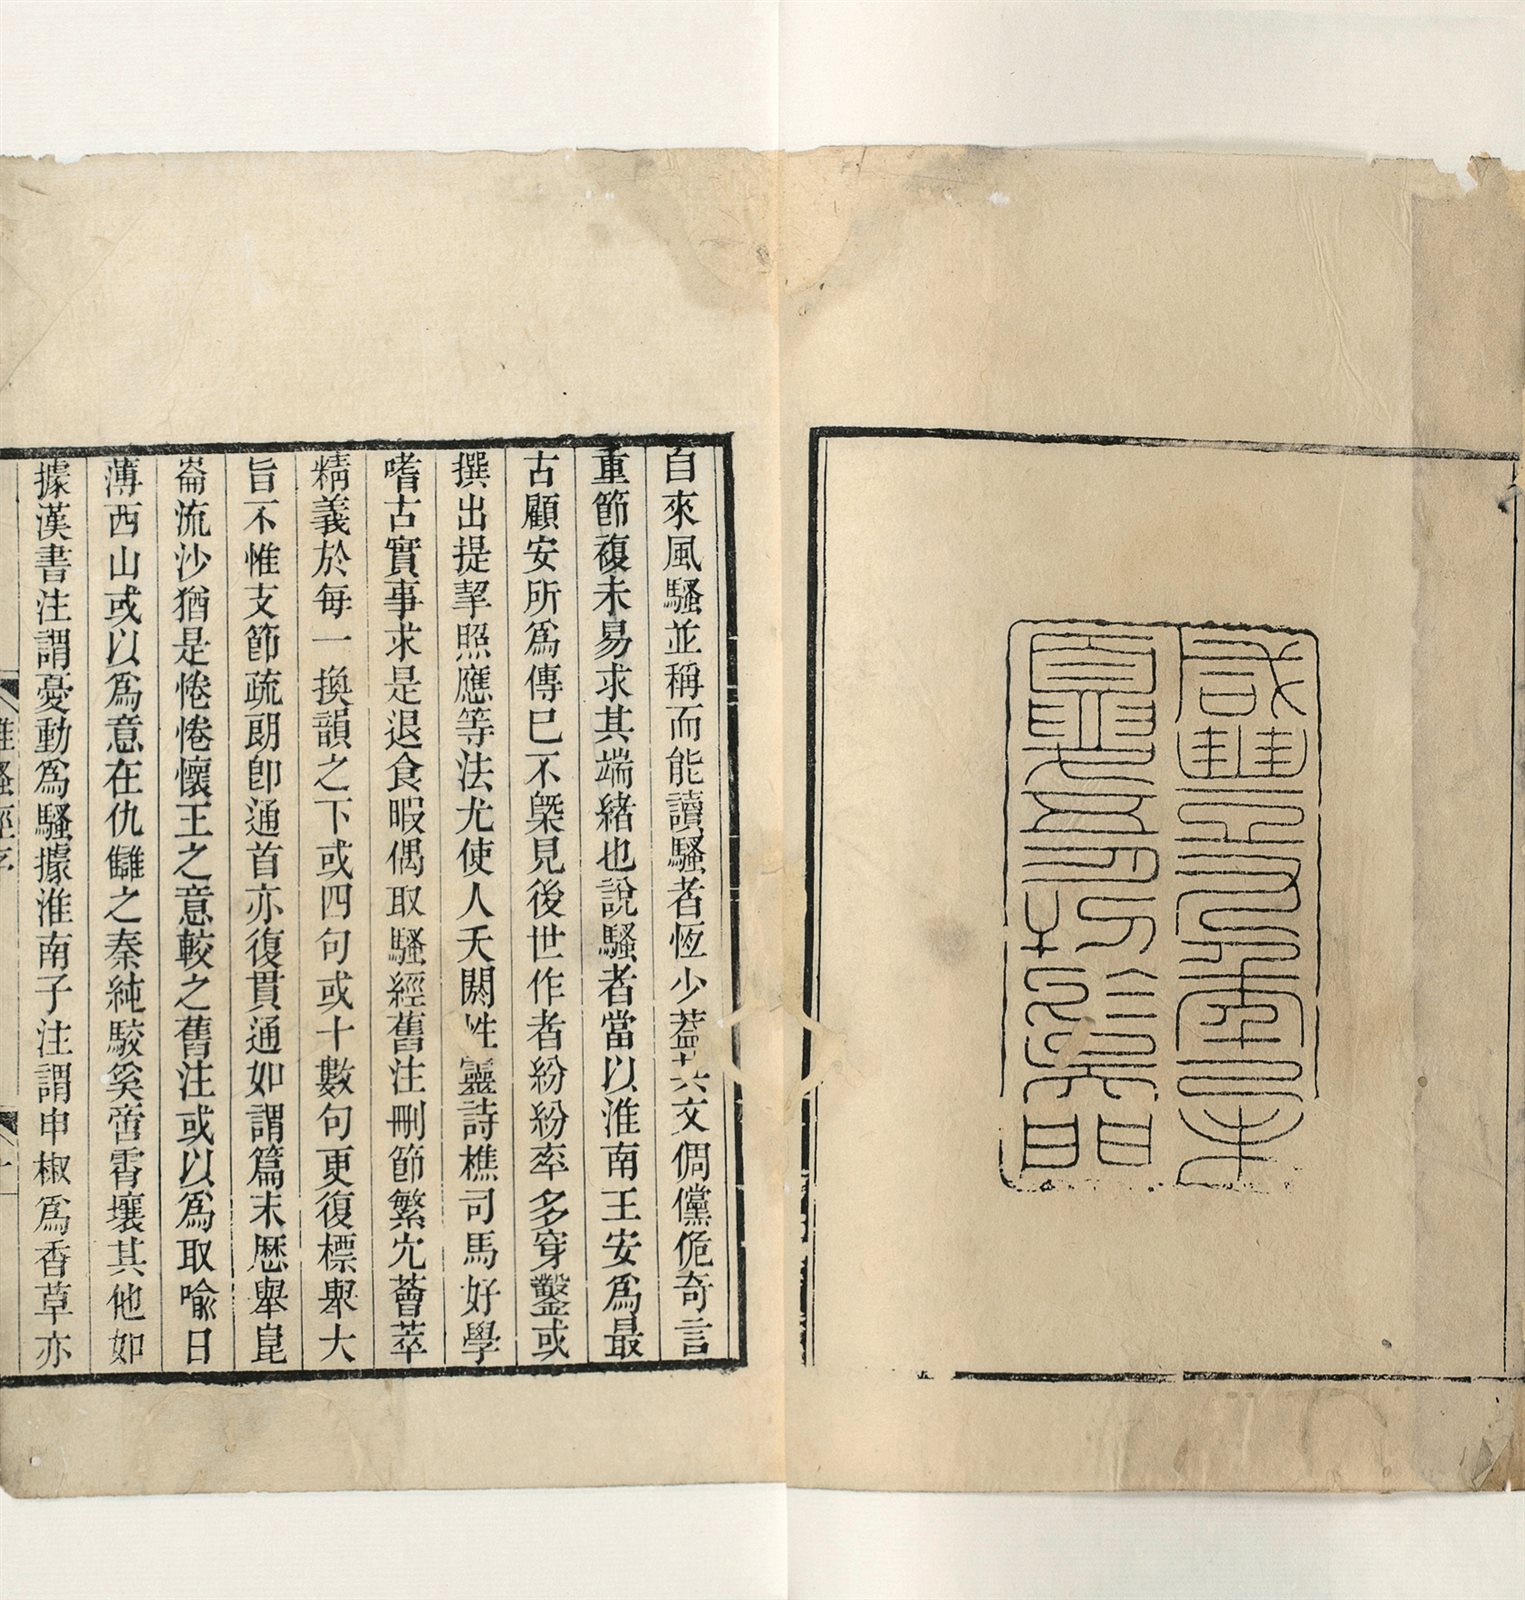 咸豐
自來風騷並稱而能讀騷者恆少葢其文倜儻佹奇言
重節複未易求其端緒也說騷者當以淮南王安爲最
古顧安所爲傳已不槩見後世作者紛紛率多穿鑿或
撰出提挈照應等法尤使人夭閼性靈詩樵司馬好學
嗜古實事求是退食暇偶取騷經舊注刪節繁宂薈萃
精義於每一換韻之下或四句或十數句更復標舉大
旨不惟支節疏朗卽通首亦復貫通如謂篇末歷舉崑
崙流沙猶是惓惓懷王之意較之舊注或以爲取喻日
薄西山或以爲意在仇讎之秦純駮奚啻霄壤其他如
據漢書注謂憂動爲騷據淮南子注謂申椒爲香草亦
離騷經序